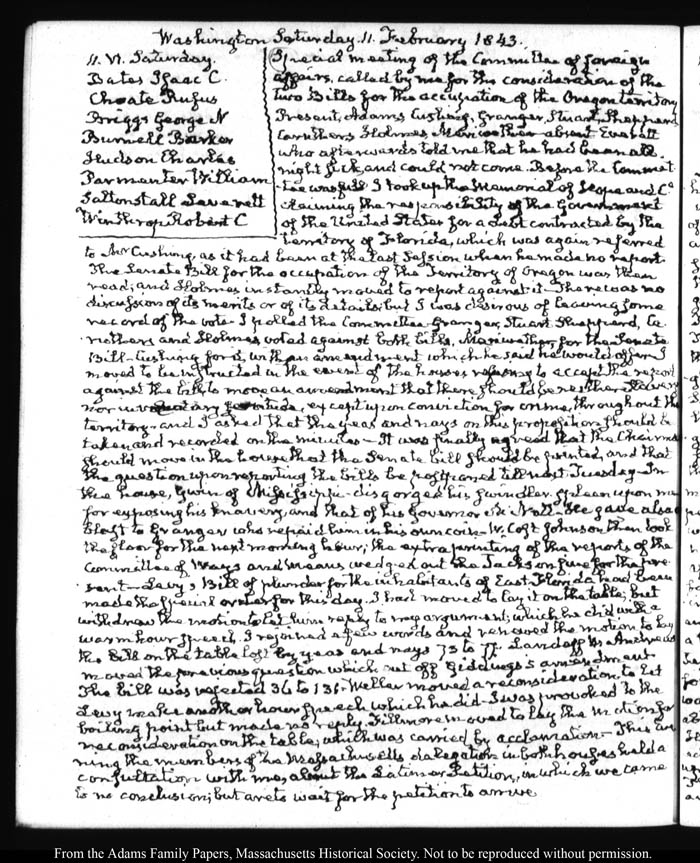 Washington Saturday 11. February 1843.
11. VI. Saturday.
Bates Isaac C.
Choate Rufus
Briggs George N
Burnell Barker
Hudson Charles
Parmenter William
Saltonstall Leverett
Winthrop Robert C
Special meeting of the Committee of foreign
affairs, called by me for the consideration of the
two Bills for the occupation of the Oregon territory
Present, Adams, Cushing, Granger, Stuart, Sheppard
Caruthers Holmes Meriwether absent Everett
who afterwards told me that he had been all
night sick and could not come. Before the Commit-
-tee was full I took up the Memorial of and Co
claiming the responsibility of the Government
of the United States for a debt contracted by the
territory of Florida, which was again referred
to Mr Cushing, as it had been at the last Session when he made no report.
The Senate Bill for the occupation of the Territory of Oregon was then
read; and Holmes instantly moved to report against it. There was no
discussion of its merits or of its details; but I was desirous of leaving some
record of the vote. I polled the Committee. Granger, Stuart Sheppard, Ca-
ruthers and Holmes voted against both bills, Meriwether for the Senate
Bill. Cushing for it, with an amendment which he said he would offer. I
moved to be instructed in the event of the houses refusing to accept the report
against the bill, to move an amendment that there should be neither slavery
nor involuntary servitude, except upon conviction for crime, throughout the
territory. and I asked that the yeas and nays on this proposition should be
taken and recorded on the minutes. It was finally agreed that the Chairman
should move in the house that the Senate bill should be printed, and that
the question upon reporting the bills be postponed till next Tuesday. In
the house, Gwin of Mississippi disgorged his swindler spleen upon me
for exposing his knavery, and that of his Governor Mc Nutt. He gave also a
blast to Granger who repaid him in his own coin. W. Cost Johnson then took
the floor for the next morning hour; the extra printing of the reports of the
Committee of Ways and Means wedged out the Jackson fine for the pre-
-sent. Levy's Bill of plunder for the inhabitants of East-Florida had been
made the special order for this day. I had moved to lay it on the table; but
withdrew the motion to let him reply to my argument; which he did with a
warm hour speech. I rejoined a few words and renewed the motion to lay
the bill on the table lost by yeas and nays 73 to 77. Landaff W. Andrews
moved the previous question which cut off Giddings's amendment.
The bill was rejected 36 to 131. Weller moved a reconsideration to let
Levy make another hour speech which he did. I was provoked to the
boiling point but made no reply. Fillmore moved to lay the motion for
reconsideration on the table; which was carried by acclamation. This eve-
ning the members of the Massachusetts delegation in both houses held a
consultation with me, about the Latimer Petition, in which we came
to no conclusion; but are to wait for the petition to arrive
From the Adams Family Papers, Massachusetts Historical Society. Not to be reproduced without permission.